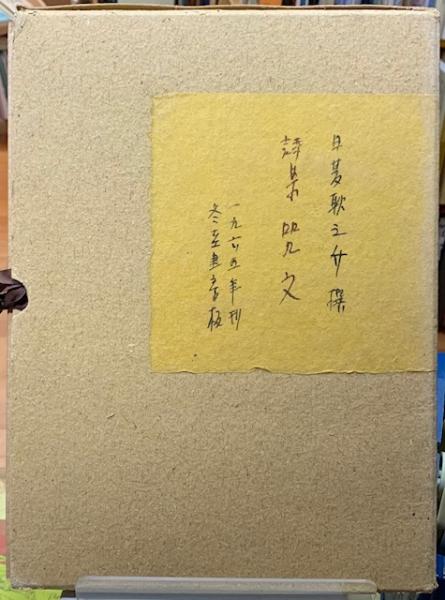 日夏耿之介撰
詩集 咒文
一九六五年刊
冬至書房板